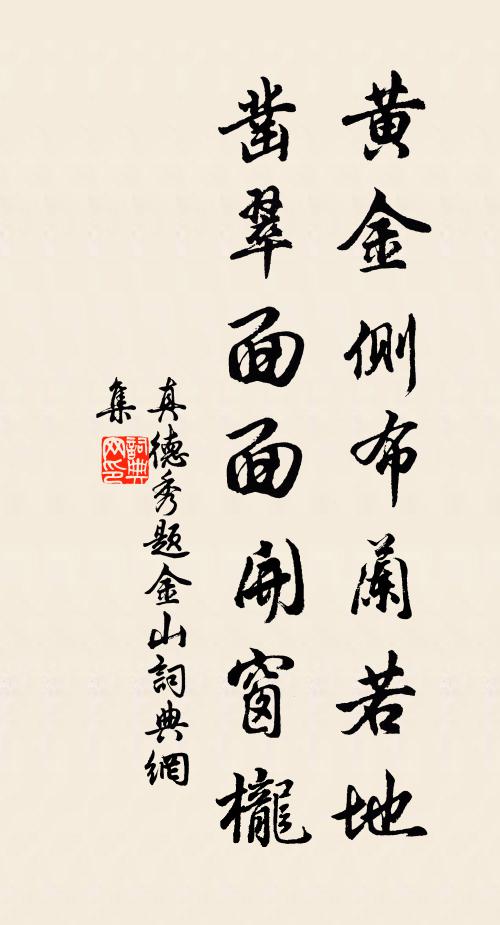 黄金側布蘭若地
鑿翠面面開窗櫳
真德秀題金山詞典網
集
詞典網印